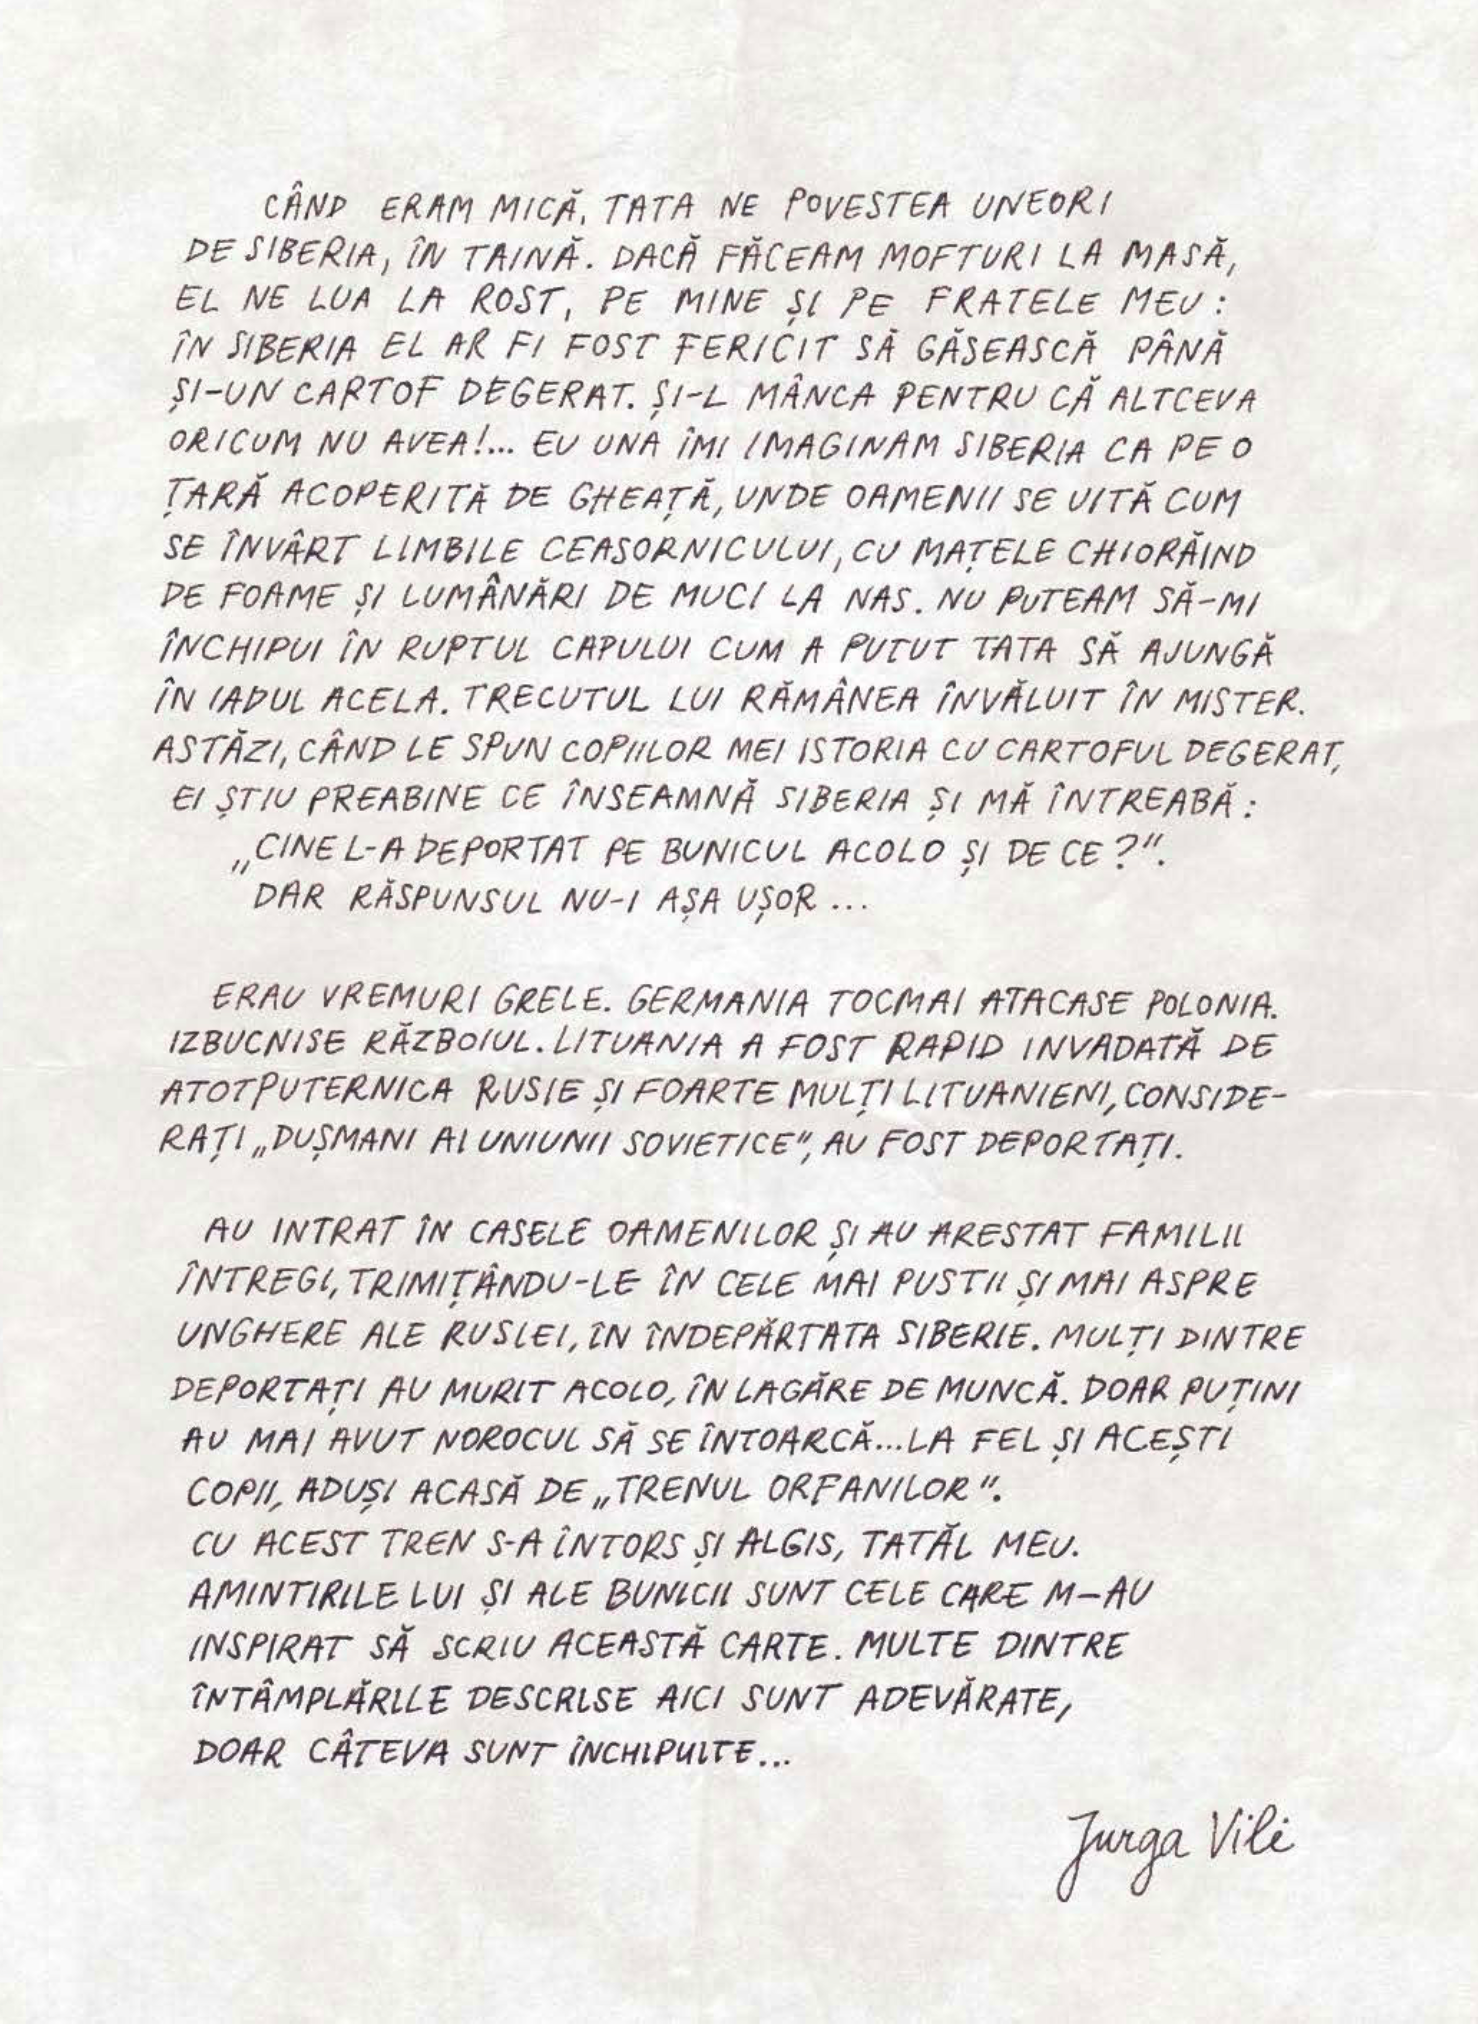 CÂND ERAM MICĂ, TATA NE POVESTEA UNEORI
DE SIBERIA, ÎN TAINĂ. DACĂ FĂCEAM MOFTURI LA MASĂ,
EL NE LUA LA ROST, PE MINE ȘI PE FRATELE MEU:
ÎN SIBERIA EL AR FI FOST FERICIT SĂ GĂSEASCĂ PÂNĂ
ȘI-UN CARTOF DEGERAT. ȘI-L MÂNCA PENTRU CĂ ALTCEVA
ORICUM NU AVEA!... EU UNA ÎMI IMAGINAM SIBERIA CA PE O
ȚARĂ ACOPERITĂ DE GHEAȚĂ, UNDE OAMENII SE UITĂ CUM
SE ÎNVÂRT LIMBILE CEASORNICULUI, CU MAȚELE CHIORĂIND
DE FOAME ȘI LUMÂNĂRI DE MUCI LA NAS. NU PUTEAM SĂ-MI
ÎNCHIPUI ÎN RUPTUL CAPULUI CUM A PUTUT TATA SĂ AJUNGĂ
ÎN IADUL ACELA. TRECUTUL LUI RĂMÂNEA ÎNVĂLUIT ÎN MISTER.
ASTĂZI, CÂND LE SPUN COPIILOR MEI ISTORIA CU CARTOFUL DEGERAT,
EI ȘTIU PREABINE CE ÎNSEAMNĂ SIBERIA ȘI MĂ ÎNTREABĂ:
„CINE L-A DEPORTAT PE BUNICUL ACOLO ȘI DE CE?".
DAR RĂSPUNSUL NU-I AȘA UȘOR...
ERAU VREMURI GRELE. GERMANIA TOCMAI ATACASE POLONIA.
IZBUCNISE RĂZBOIUL. LITUANIA A FOST RAPID INVADATĂ DE
ATOTPUTERNICA RUSIE ȘI FOARTE MULȚI LITUANIENI, CONSIDE-
RAȚI „DUȘMANI AI UNIUNII SOVIETICE", AU FOST DEPORTAȚI.
AU INTRAT ÎN CASELE OAMENILOR ȘI AU ARESTAT FAMILII
ÎNTREGI, TRIMIȚÂNDU-LE ÎN CELE MAI PUSTII ȘI MAI ASPRE
UNGHERE ALE RUSIEI, ÎN ÎNDEPĂRTATA SIBERIE. MULȚI DINTRE
DEPORTAȚI AU MURIT ACOLO, ÎN LAGĂRE DE MUNCĂ. DOAR PUȚINI
AU MAI AVUT NOROCUL SĂ SE ÎNTOARCĂ... LA FEL ȘI ACEȘTI
COPII, ADUȘI ACASĂ DE „TRENUL ORFANILOR".
CU ACEST TREN S-A ÎNTORS ȘI ALGIS, TATĂL MEU.
AMINTIRILE LUI ȘI ALE BUNICII SUNT CELE CARE M-AU
INSPIRAT SĂ SCRIU ACEASTĂ CARTE. MULTE DINTRE
ÎNTÂMPLĂRILE DESCRISE AICI SUNT ADEVĂRATE,
DOAR CÂTEVA SUNT ÎNCHIPUITE...
Jurga Vilė